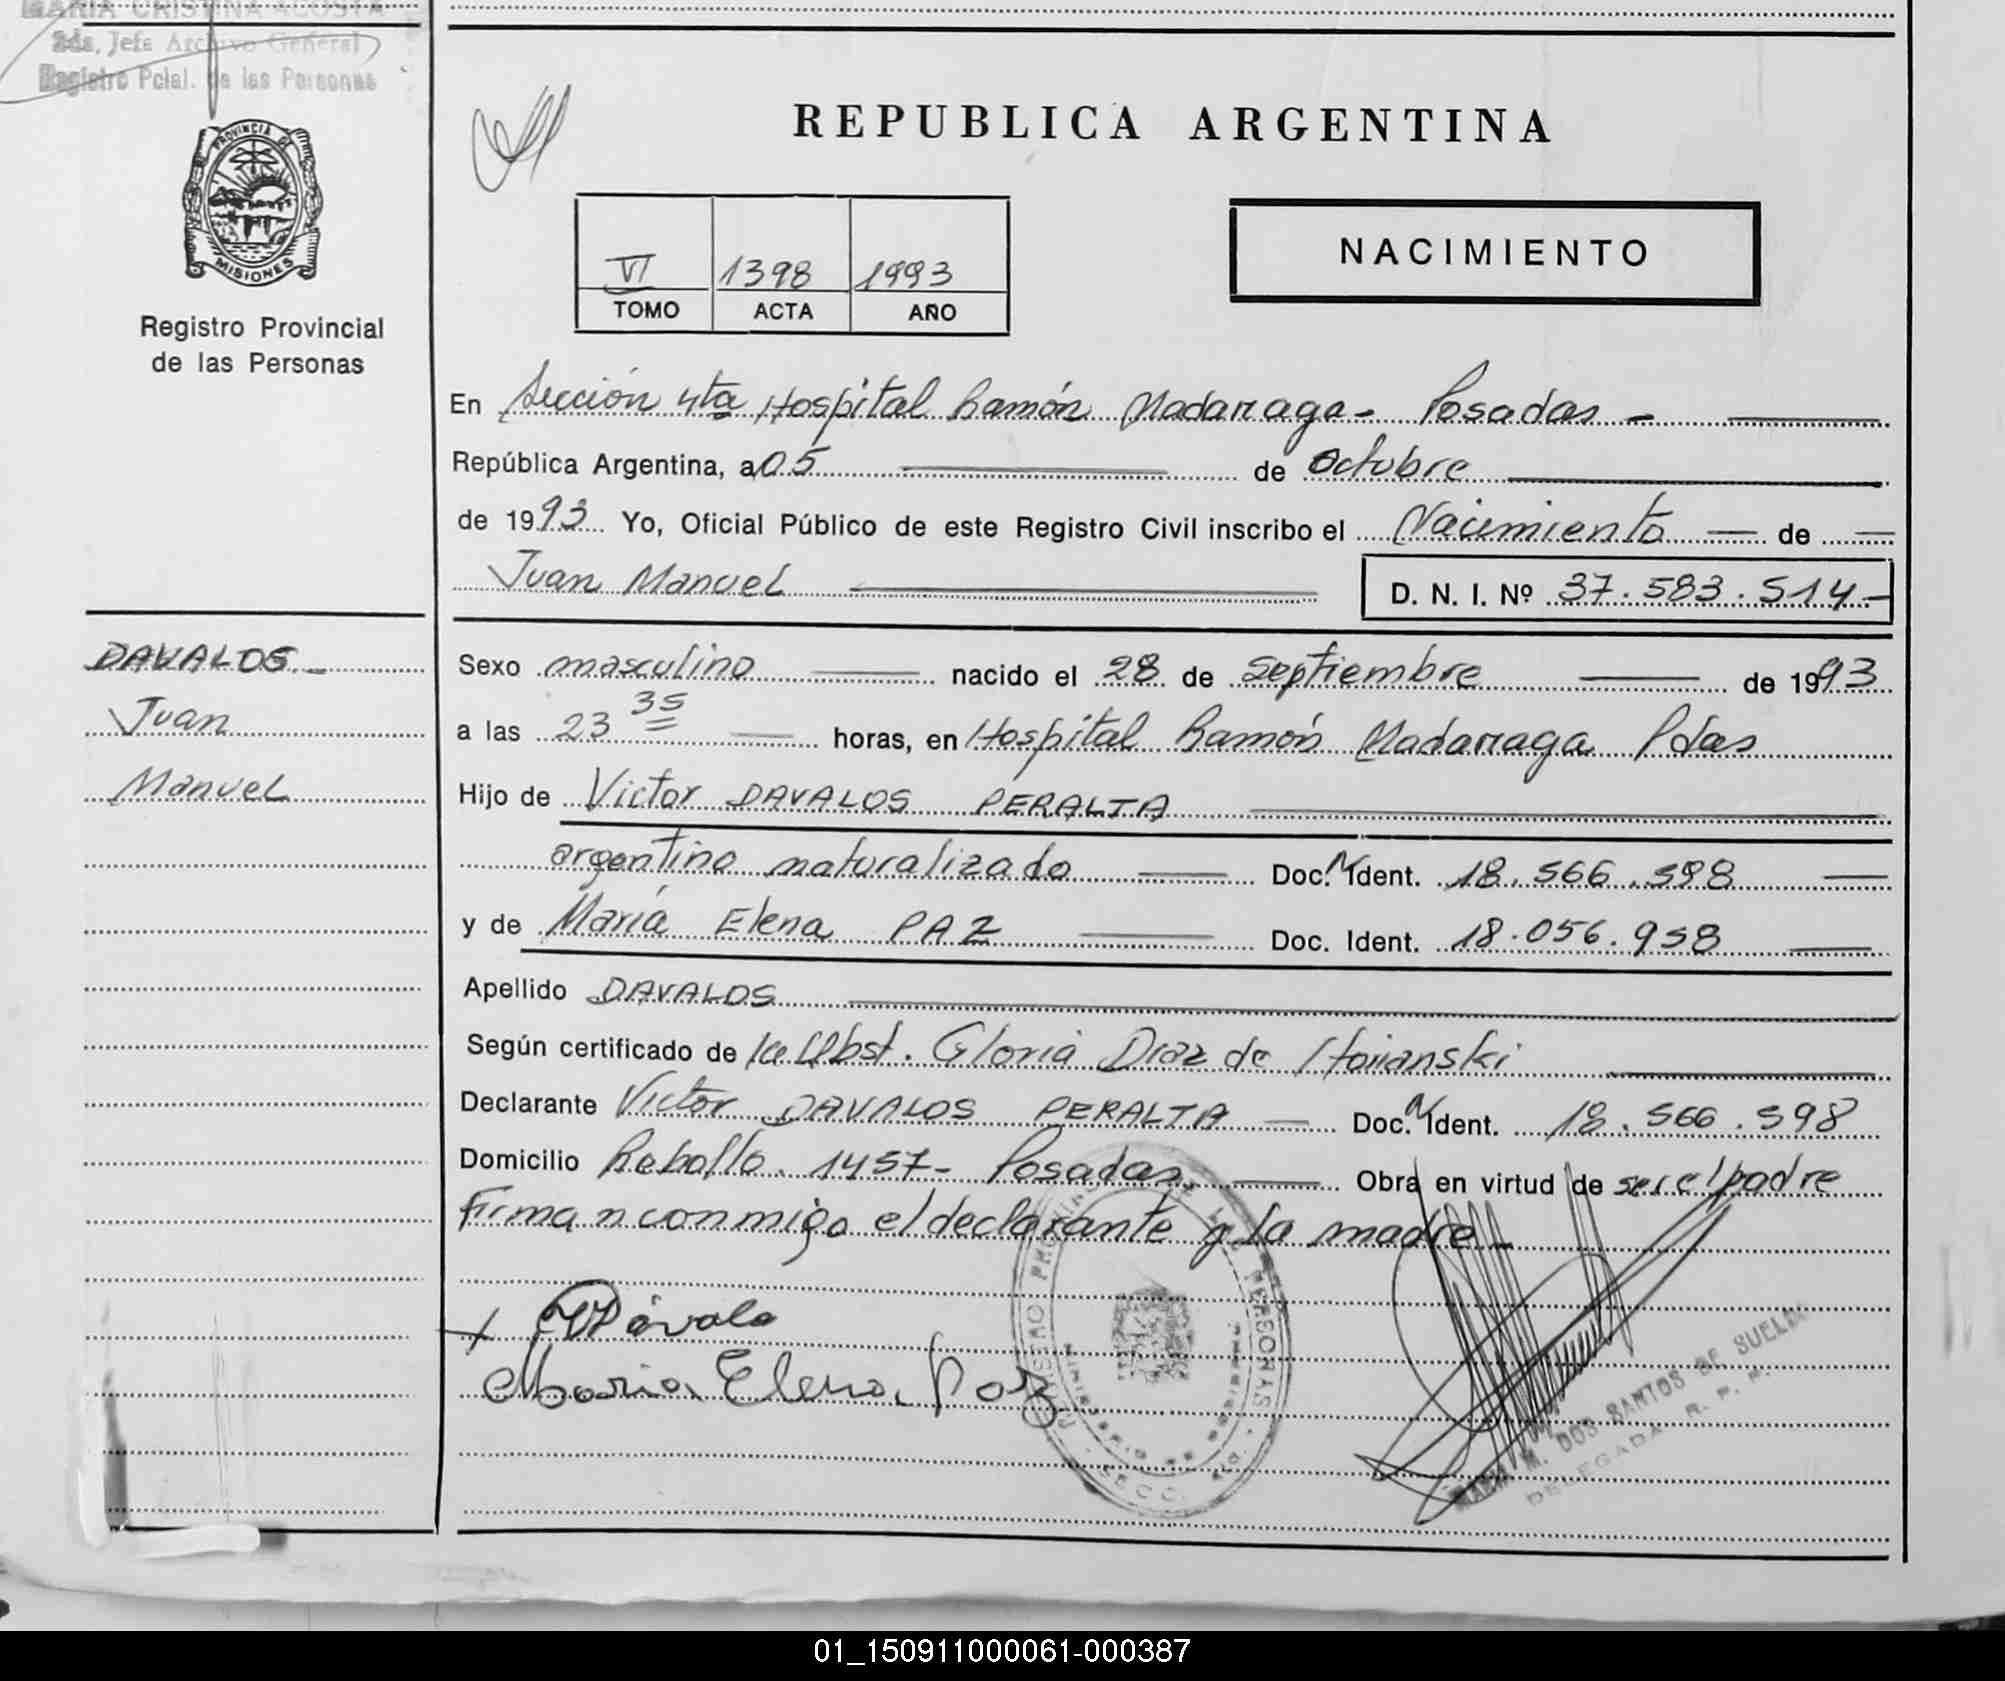 MARIA CRISTINA ACOSTA
2da. Jefa Archivo General
Registro Pcial. de las Personas
PROVINCIA DE
MISIONES
Registro Provincial
de las Personas
DAVALOS.-
Juan
Manuel
REPUBLICA ARGENTINA
VI 1398 1993
TOMO ACTA AÑO
NACIMIENTO
En Sección 4ta Hospital Ramón Madarraga - Posadas -
República Argentina, a 05 de Octubre
de 1993 Yo, Oficial Público de este Registro Civil inscribo el Nacimiento - de -
Juan Manuel D. N. I. Nº 37.583.514-
Sexo masculino nacido el 28 de Septiembre de 1993
a las 23 35 horas, en Hospital Ramón Madarraga Pdas
Hijo de Victor DAVALOS PERALTA
argentino naturalizado Doc. N Ident. 18.566.598
y de María Elena PAZ Doc. Ident. 18.056.958
Apellido DAVALOS
Según certificado de la Obst. Gloria Diaz de
Declarante Victor DAVALOS PERALTA - Doc. N Ident. 18.566.598
Domicilio Rebollo 1457- Posadas. Obra en virtud de ser el padre
Firman conmigo el declarante y la madre -
Dávalo
Maria Elena Paz
DOS SANTOS DE
DELEGADA R. P. P.
01_150911000061-000387